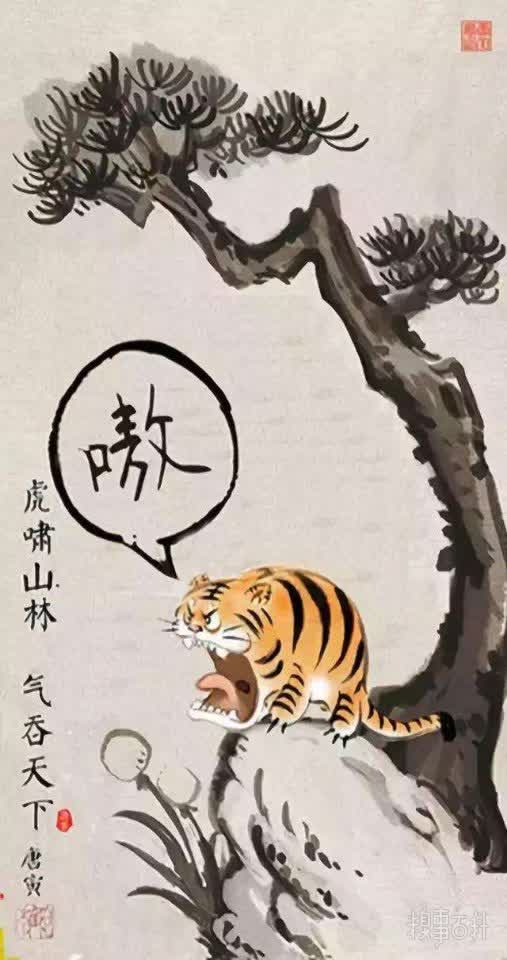 嗷
虎啸山林 气吞天下
唐寅
糗事百科